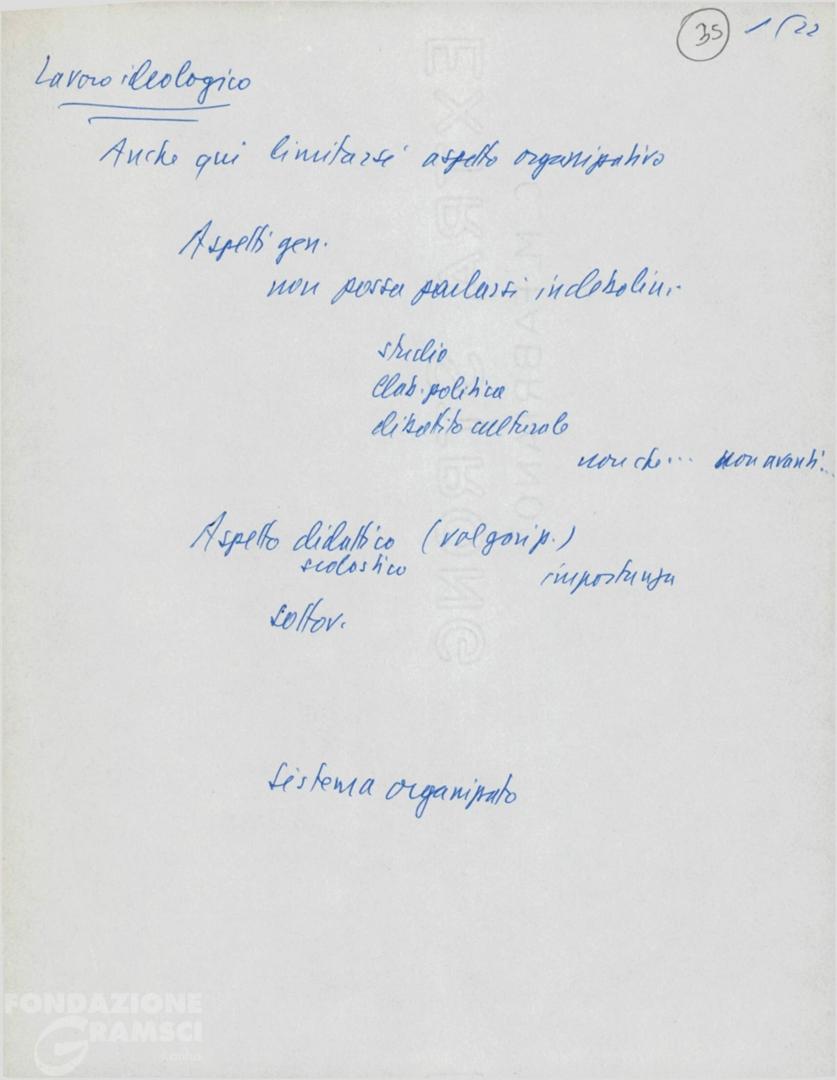 35 1/22
Lavoro ideologico
Anche qui limitarsi aspetto organizzativo
Aspetti gen.
non possa parlarsi indebolim.
studio
Elab. politica
dibattito culturale
non che... non avanti...
Aspetto didattico (volgariz.)
scolastico importanza
sottov.
Sistema organizzato
EXTRA STRONG
FABRIANO
FONDAZIONE
GRAMSCI